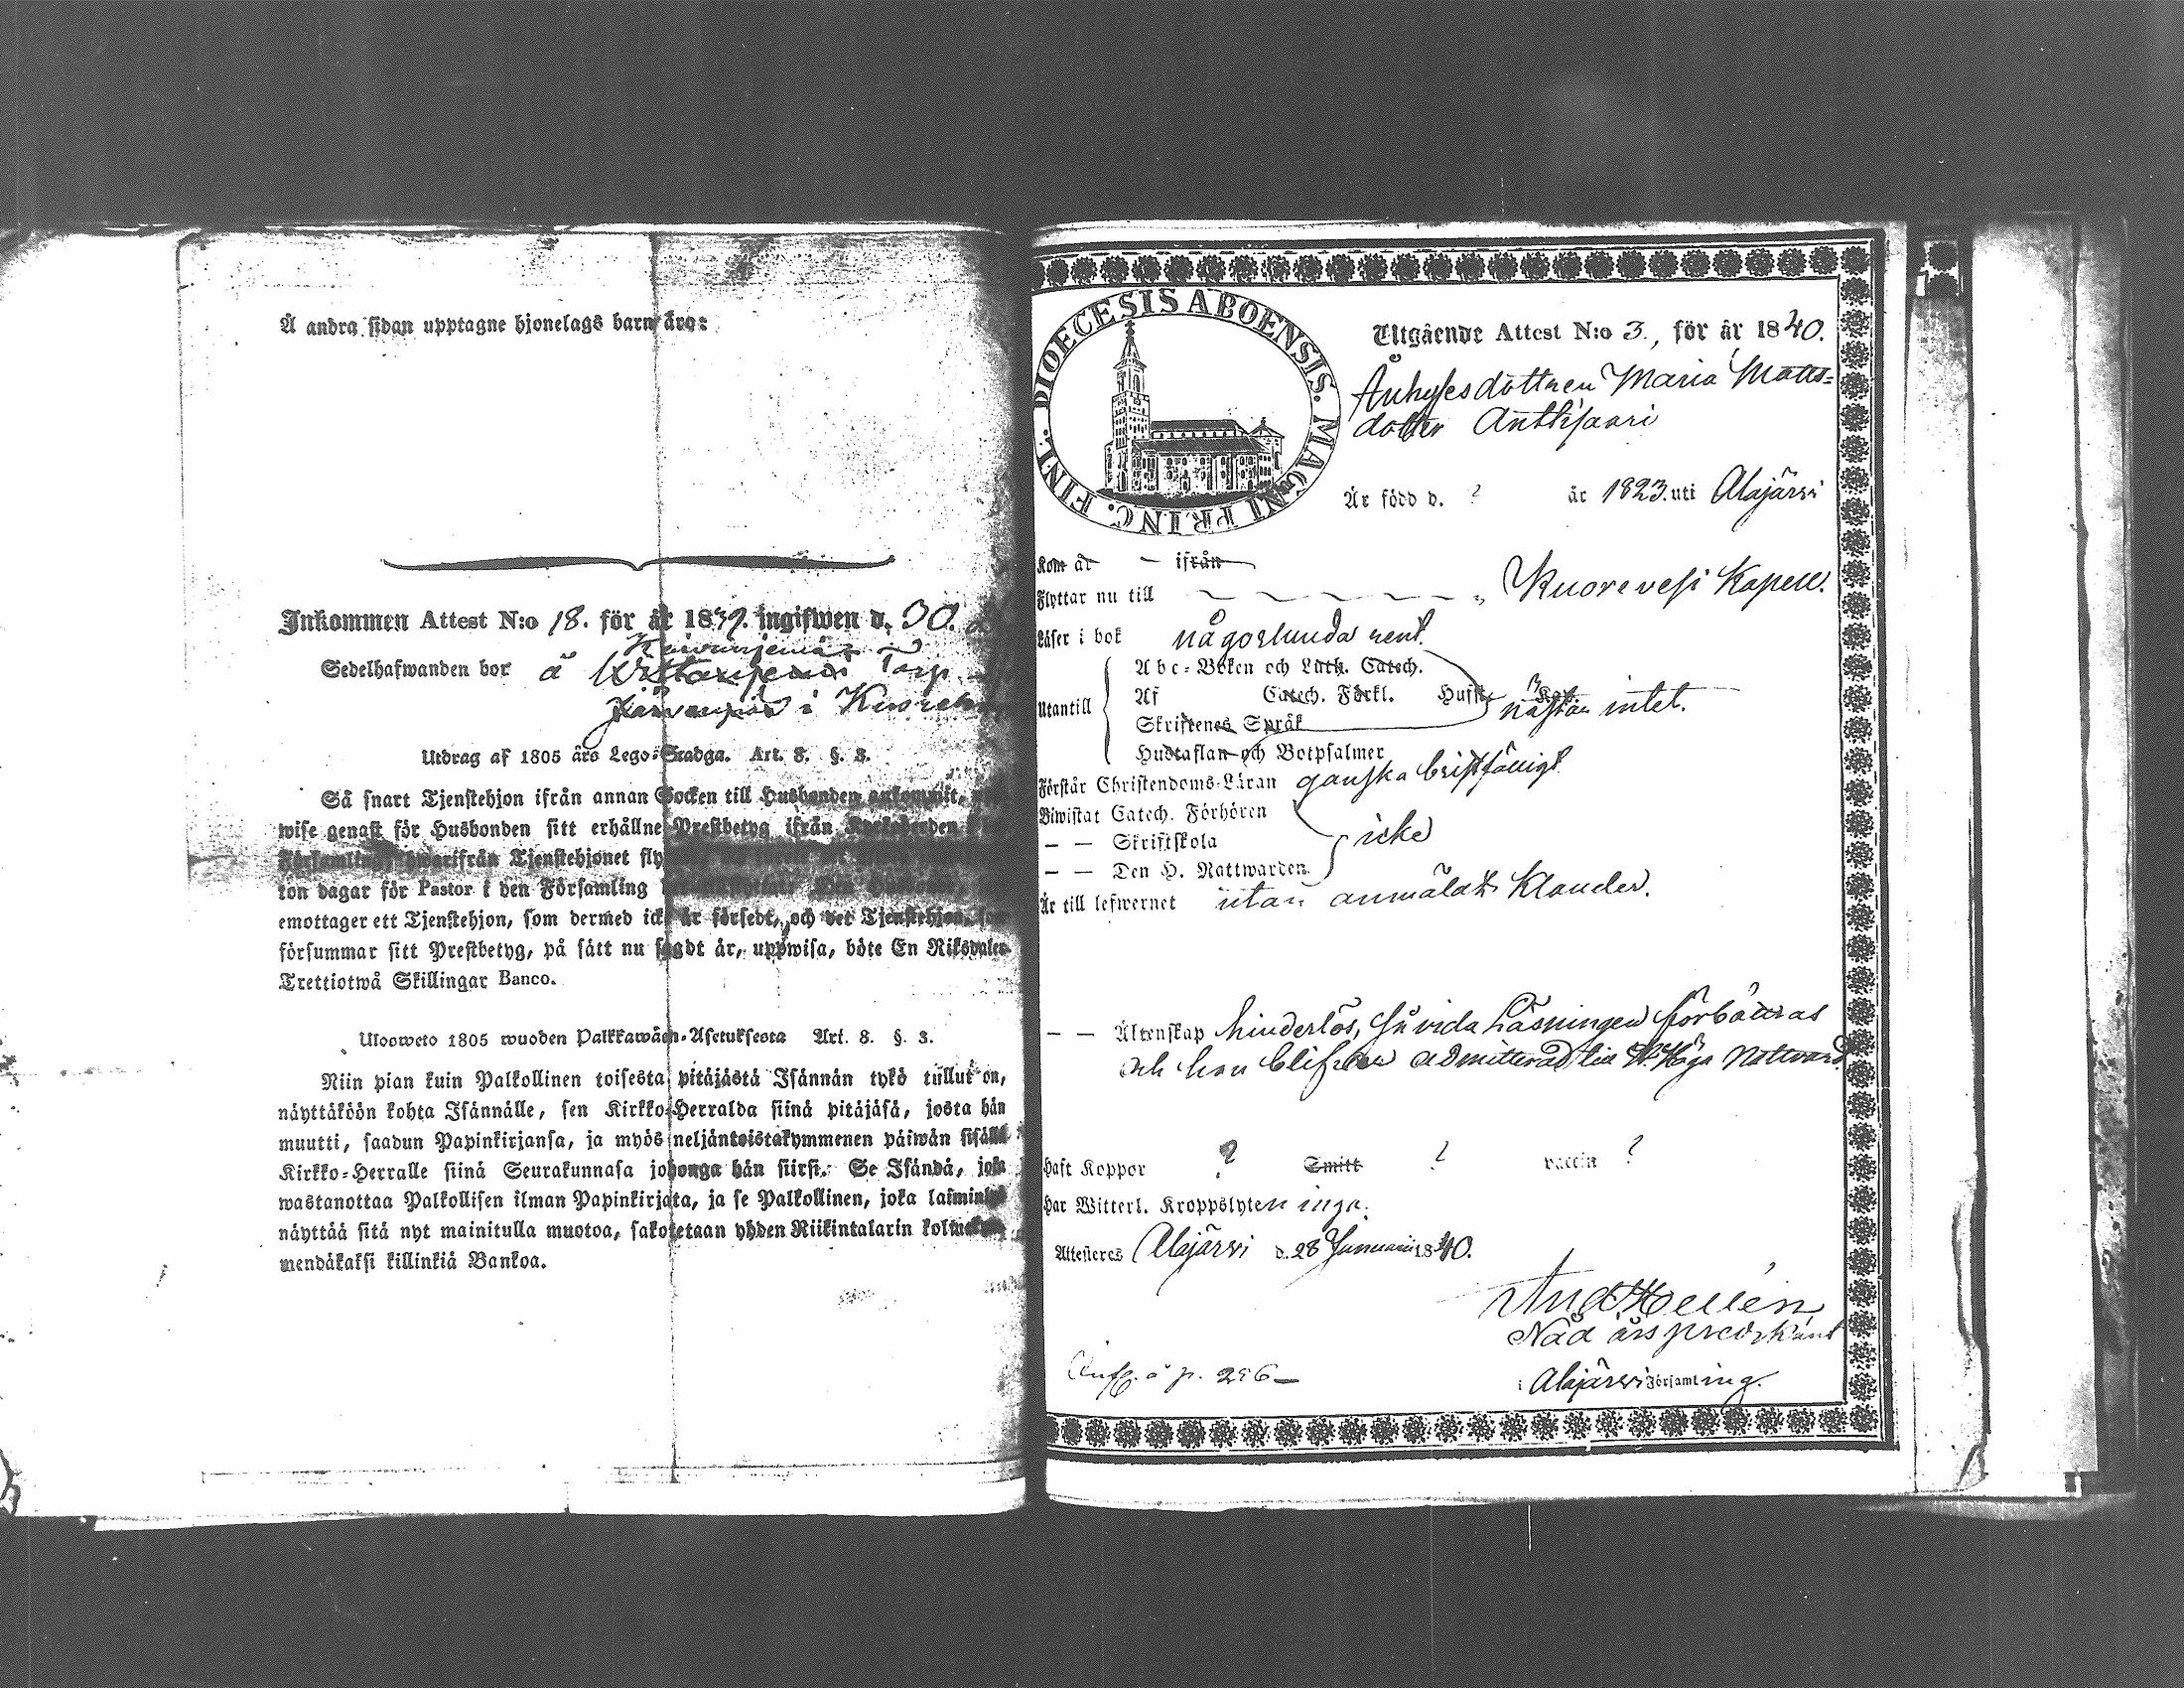 Å andra sidan upptagne hjonelags barn äro:
Inkommen Attest N:o 18. för år 1839. ingifwen d. 30.
Sedelhafwanden bor å Torp
i
Utdrag af 1805 års Lego-Stadga. Art. 8. §. 3.
Så snart Tjenstehjon ifrån annan Socken till Husbonden ankommit,
wise genast för Husbonden sitt erhållne Prestbetyg ifrån Kyrkoherden
Församling hwarifrån Tjenstehjonet
ton dagar för Pastor i den Församling
emottager ett Tjenstehjon, som dermed icke är försedt, och det Tjenstehjon, som
försummar sitt Prestbetyg, på sätt nu sagdt är, uppwisa, böte En Riksdaler
Trettiotwå Skillingar Banco.
Ulosweto 1805 wuoden Palkkawäen-Asetuksesta Art. 8. §. 3.
Niin pian kuin Palkollinen toisesta pitäjästä Isännän tykö tullut on,
näyttäköön kohta Isännälle, sen Kirkko-Herralda siinä pitäjäsä, josta hän
muutti, saadun Papinkirjansa, ja myös neljäntoistakymmenen päiwän sisällä
Kirkko-Herralle siinä Seurakunnasa johonga hän siirsi. Se Isändä, joka
wastanottaa Palkollisen ilman Papinkirjata, ja se Palkollinen, joka laiminlyö
näyttää sitä nyt mainitulla muotoa, sakotetaan yhden Riikintalarin kolmekym-
mendäkaksi killinkiä Bankoa.
DIOECESIS ABOENSIS. MAGNI PRINC. FINL.
Utgående Attest N:o 3., för år 1840.
Inhysesdottren Maria Matts-
dotter Anttisaari
Är född d. ? år 1823. uti Alajärvi
Kom år - ifrån
Flyttar nu till Kuorevesi Kapell.
Läser i bok någorlunda rent.
Abc-Boken och Luth. Catech.
Utantill Af Catech. Förkl. Hufst. Kap. nästan intet.
Skriftenes Språk
Hustaflan och Botpsalmer
Förstår Christendoms-Läran ganska bristfälligt
Biwistat Catech. Förhören
— — Skriftskola icke
— — Den H. Nattwarden
Är till lefwernet utan anmäldt klander.
— — Äktenskap hinderlös, så vida Läsningen förbättras
och hon blifver admitterad till H. Höga Nattvard.
Haft Koppor ? Smitt ? vaccin ?
Har Witterl. Kroppslyten inga.
Attesteras Alajärvi d. 28 Januarii 1840.
And. Hellén
Nåd års predikant
i Alajärvi Församling.
å p. 296